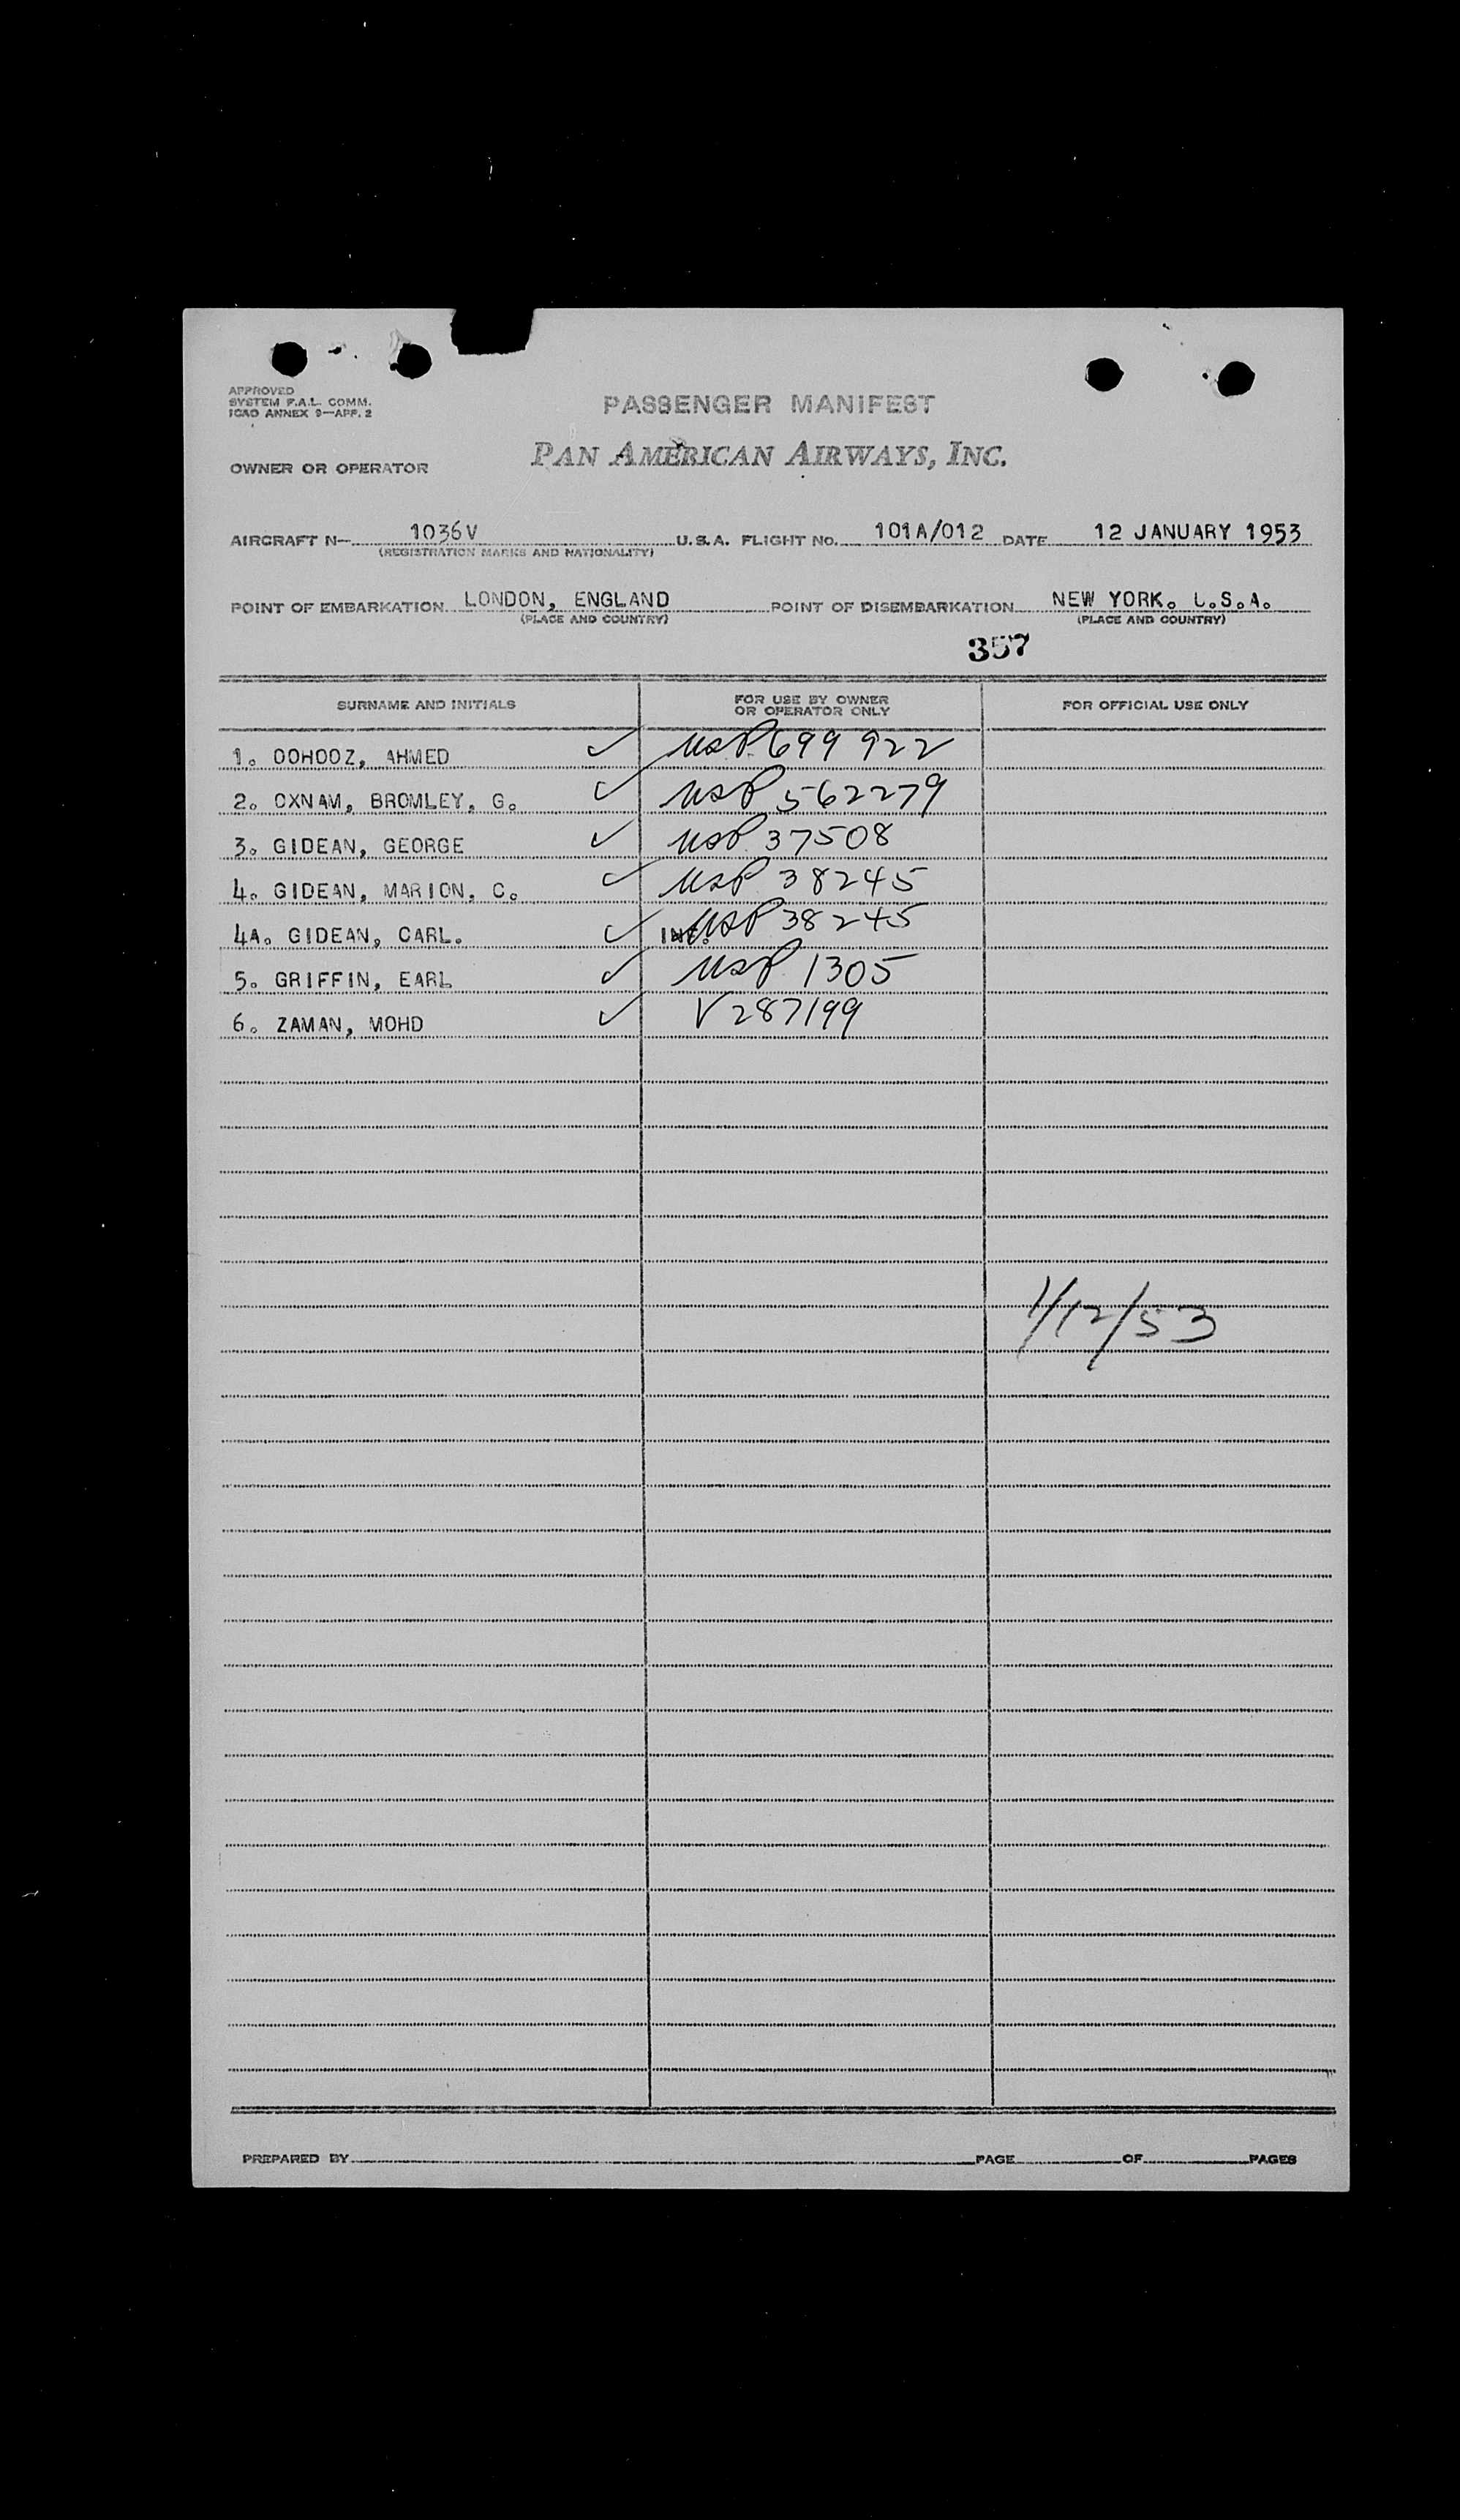 APPROVED
SYSTEM F.A.L. COMM.
ICAO ANNEX 9—APP. 2
PASSENGER MANIFEST
OWNER OR OPERATOR PAN AMERICAN AIRWAYS, INC.
AIRCRAFT N— 1036V U.S.A. FLIGHT NO. 101A/012 DATE 12 JANUARY 1953
(REGISTRATION MARKS AND NATIONALITY)
POINT OF EMBARKATION LONDON, ENGLAND POINT OF DISEMBARKATION NEW YORK. U.S.A.
(PLACE AND COUNTRY) (PLACE AND COUNTRY)
357
SURNAME AND INITIALS FOR USE BY OWNER OR OPERATOR ONLY FOR OFFICIAL USE ONLY
1. OOHOOZ, AHMED ✓ USP 699 922
2. OXNAM, BROMLEY, G. ✓ USP 562279
3. GIDEAN, GEORGE ✓ USP 37508
4. GIDEAN, MARION, C. ✓ USP 38245
4A. GIDEAN, CARL. ✓ INF. USP 38245
5. GRIFFIN, EARL ✓ USP 1305
6. ZAMAN, MOHD ✓ V 287199
1/12/53
PREPARED BY PAGE OF PAGES